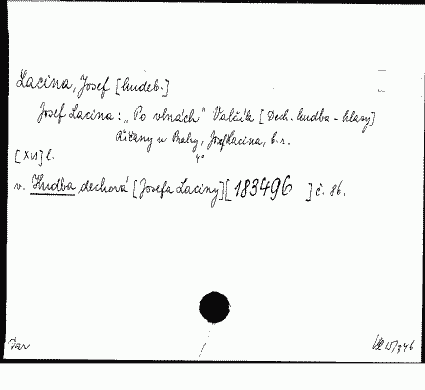 Lacina, Josef [hudeb.]
Josef Lacina: „Po vlnách" Valčík [Dech. hudba - hlasy]
Říčany u Prahy, Josef Lacina, b. r.
4°
[XVI] l.
v. Hudba dechová [Josefa Laciny] [183496 ] č. 86.
Dar